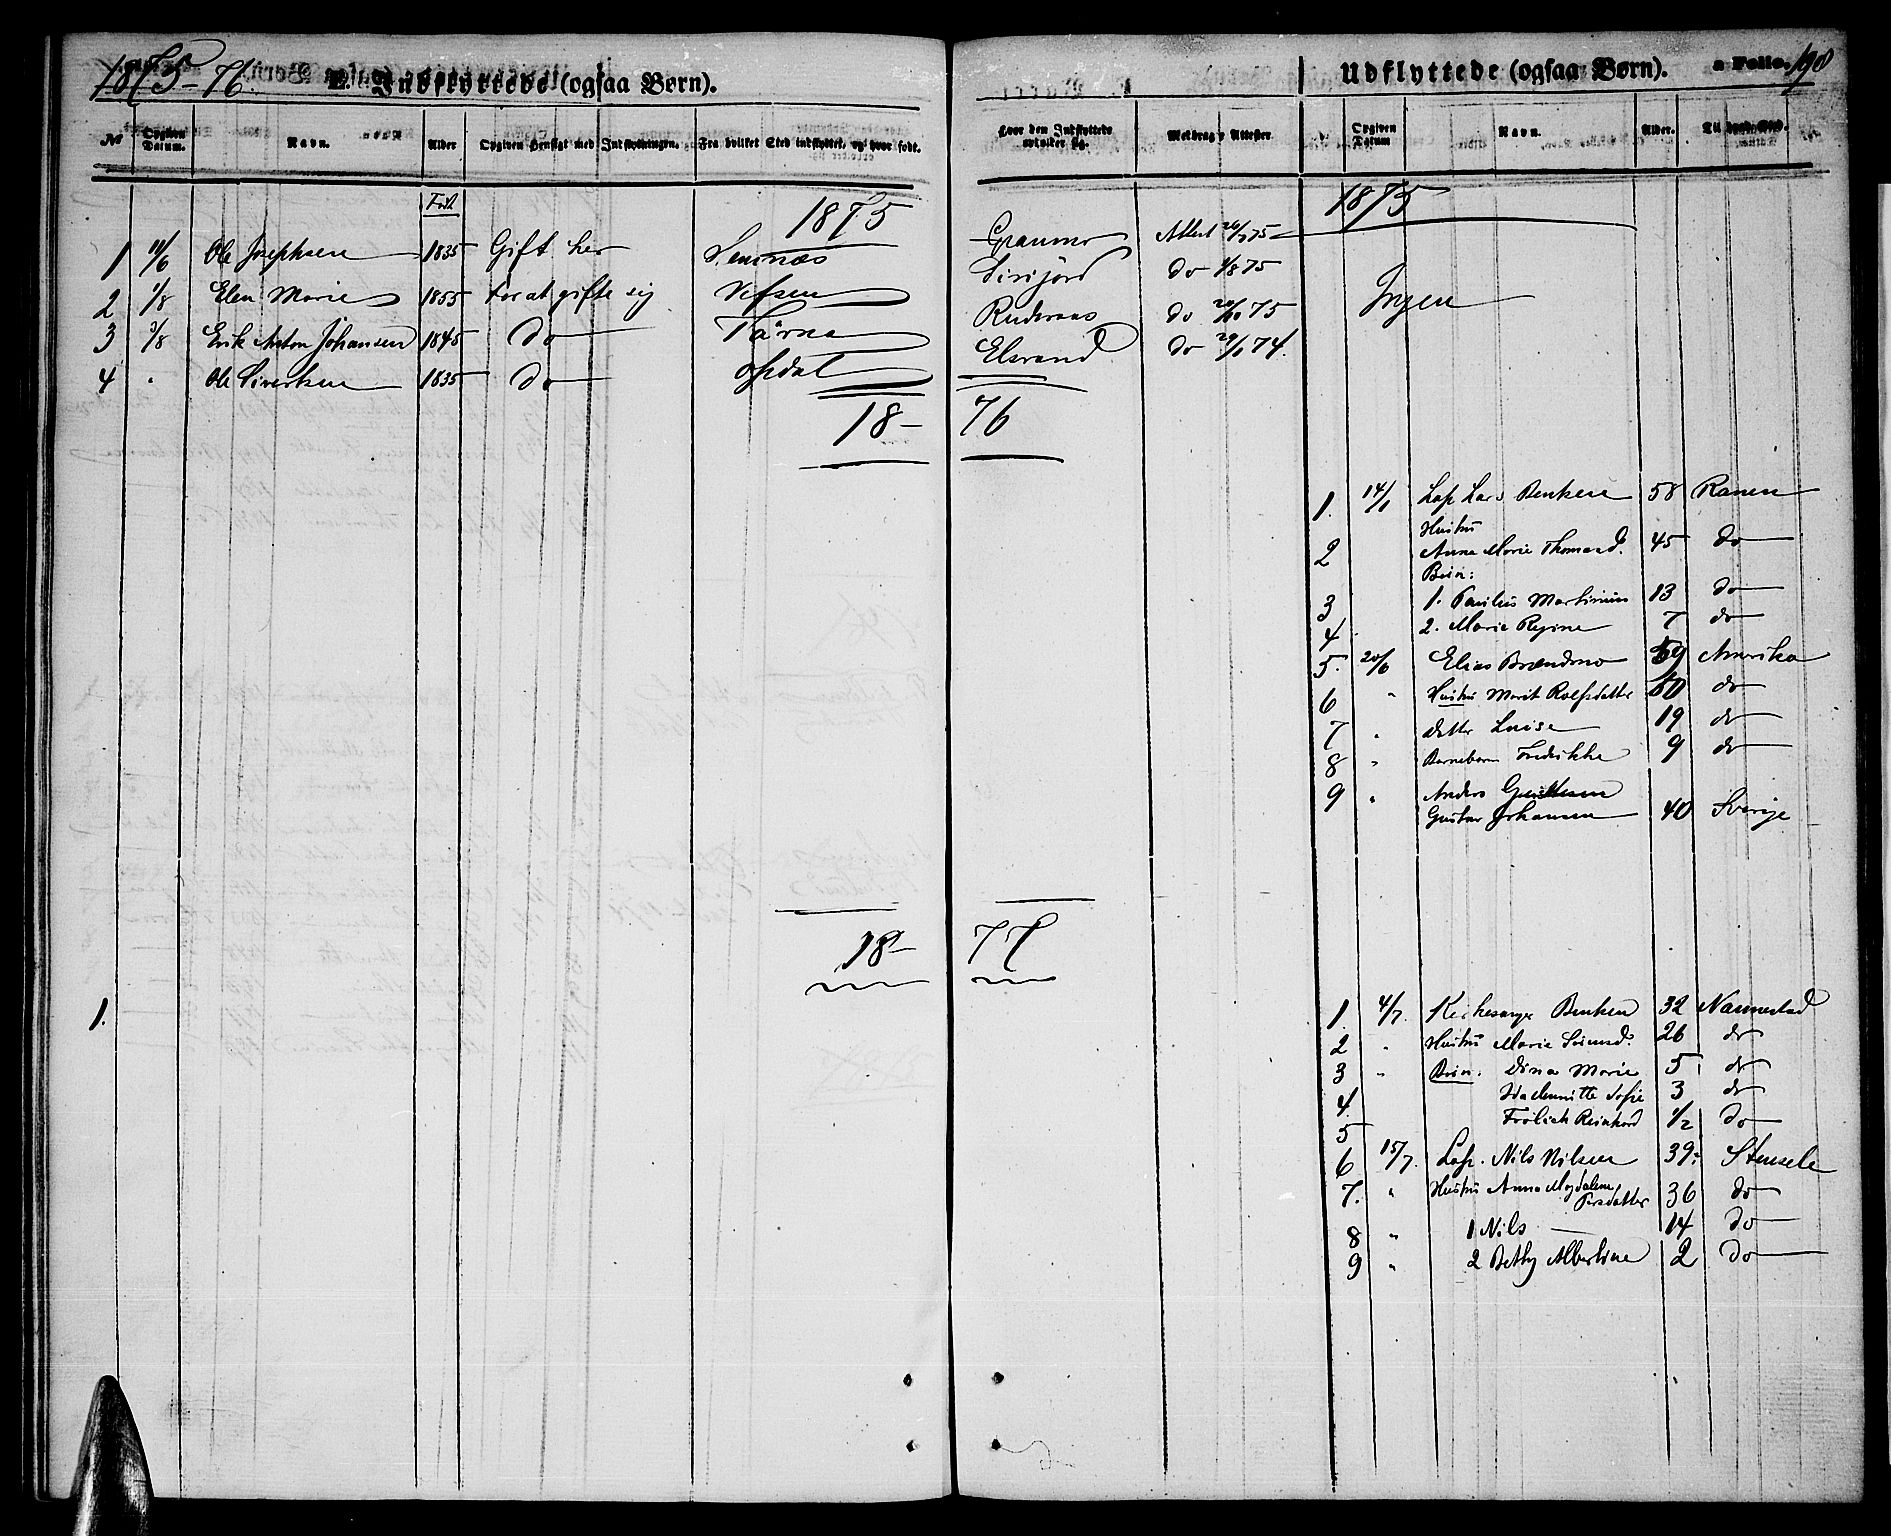 1875-76.
E. Indflyttede (ogsaa Børn).
Udflyttede (ogsaa Børn).
a Folio. 198
No Opgiven Datum. Navn. Alder Opgiven Hensigt med Indflytningen. Fra hvilket Sted indflyttet, og hvor født. Hvor den Indflyttede opholder sig. Meldrag. Attester
Opgiven Datum Navn. Alder. Til hvilket Sted.
Født
1875
1875
1 11/6 Ole Josephsen 1835 Gift her Granmo Attest 26/7 75
2 1/8 Elen Marie 1855 For at gifte sig Vefsen Sirijord do 1/8 75
3 3/8 Erik Anton Johansen 1845 do Tärna do 20/10 75
4 " Ole Sivertsen 1835 do Opdal Elsvand do 29/1 74.
Ingen
18-76
1. 14/1 Lap Lars Bentsen 58 Ranen
Hustru
2 Anna Marie Thomasd. 45 do
Børn:
3 1. Paulus Martinius 13 do
4 2. Marie Regine 7 do
5. 20/6 Elias Brændmo 59 Amerika
6 " Hustru Marit Rolfsdatter 50 do
7 " datter Luise 19 do
8 " Barnebarn Fredrikke 9 do
9 " Anders
Gustav Johansen 40 Sverige
18-77
1.
1. 4/7. Kirkesanger Bentsen 32 Nannestad
2 " Hustru Marie Simensd. 26 do
3 " Børn. Dina Marie 5 do
4. Sofie 3 do
5 Frölich Reinhard 1/2 do
6 15/7. Lap. Nils Nilsen 39 Stensele
7. " Hustru Anna Magdalena Persdatter 36 do
8 " 1 Nils 14 do
9 " 2 Betby Albertine 2 do